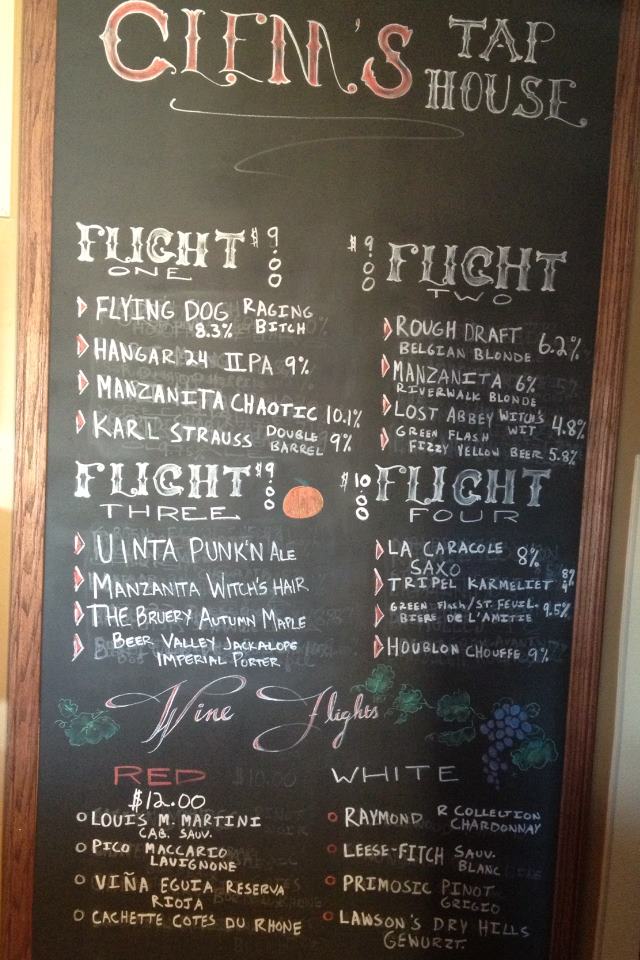 CLEM'S TAP HOUSE
FLIGHT $9.00
ONE
FLYING DOG RAGING BITCH
8.3%
HANGAR 24 IIPA 9%
MANZANITA CHAOTIC 10.1%
KARL STRAUSS DOUBLE BARREL 9%
$9.00 FLIGHT
TWO
ROUGH DRAFT 6.2%
BELGIAN BLONDE
MANZANITA 6%
RIVERWALK BLONDE
LOST ABBEY WITCH'S WIT 4.8%
GREEN FLASH
FIZZY YELLOW BEER 5.8%
FLIGHT $9.00
THREE
UINTA PUNK'N ALE
MANZANITA WITCH'S HAIR
THE BRUERY AUTUMN MAPLE
BEER VALLEY JACKALOPE
IMPERIAL PORTER
$10.00 FLIGHT
FOUR
LA CARACOLE 8%
SAXO
TRIPEL KARMELIET
GREEN FLASH/ST. FEUIL. 9.5%
BIERE DE L'AMITIE
HOUBLON CHOUFFE 9%
Wine Flights
RED $10.00
$12.00
LOUIS M. MARTINI
CAB. SAUV.
PICO MACCARIO
LAVIGNONE
VIÑA EGUIA RESERVA
RIOJA
CACHETTE COTES DU RHONE
WHITE
RAYMOND R COLLECTION
CHARDONNAY
LEESE-FITCH SAUV.
BLANC
PRIMOSIC PINOT
GRIGIO
LAWSON'S DRY HILLS
GEWURZT.